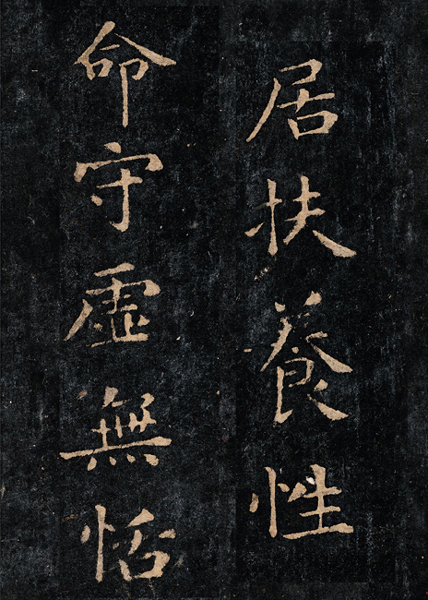 居扶養性
命守虛無恬